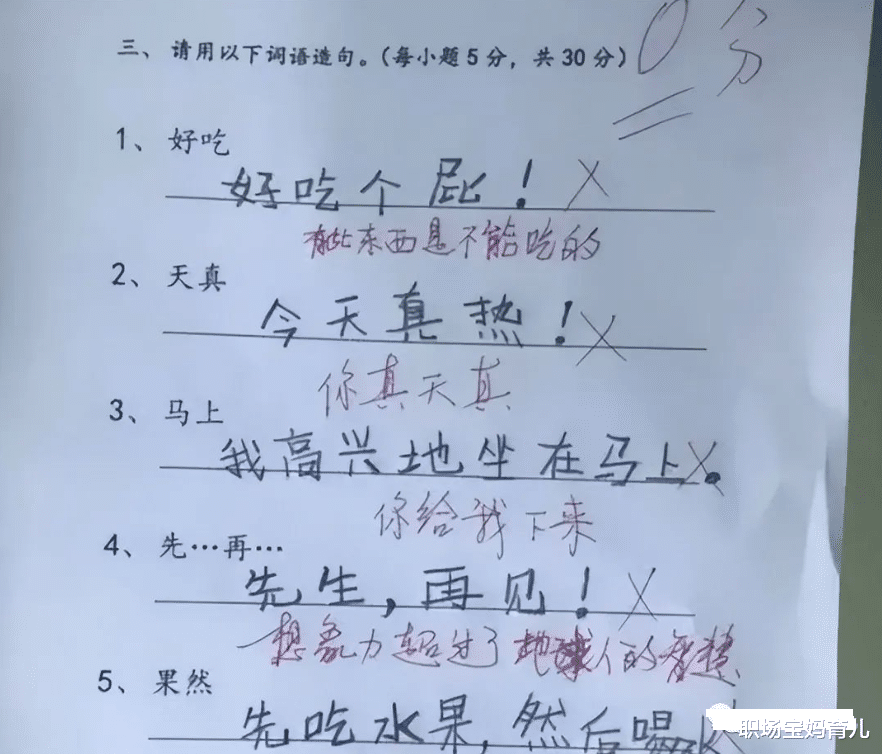 三、请用以下词语造句。(每小题5分，共30分)
0分
1、好吃
好吃个屁！
有些东西是不能吃的
2、天真
今天真热！
你真天真
3、马上
我高兴地坐在马上。
你给我下来
4、先…再…
先生，再见！
想象力超过了地球人的智慧
5、果然
先吃水果，然后喝
职场宝妈育儿